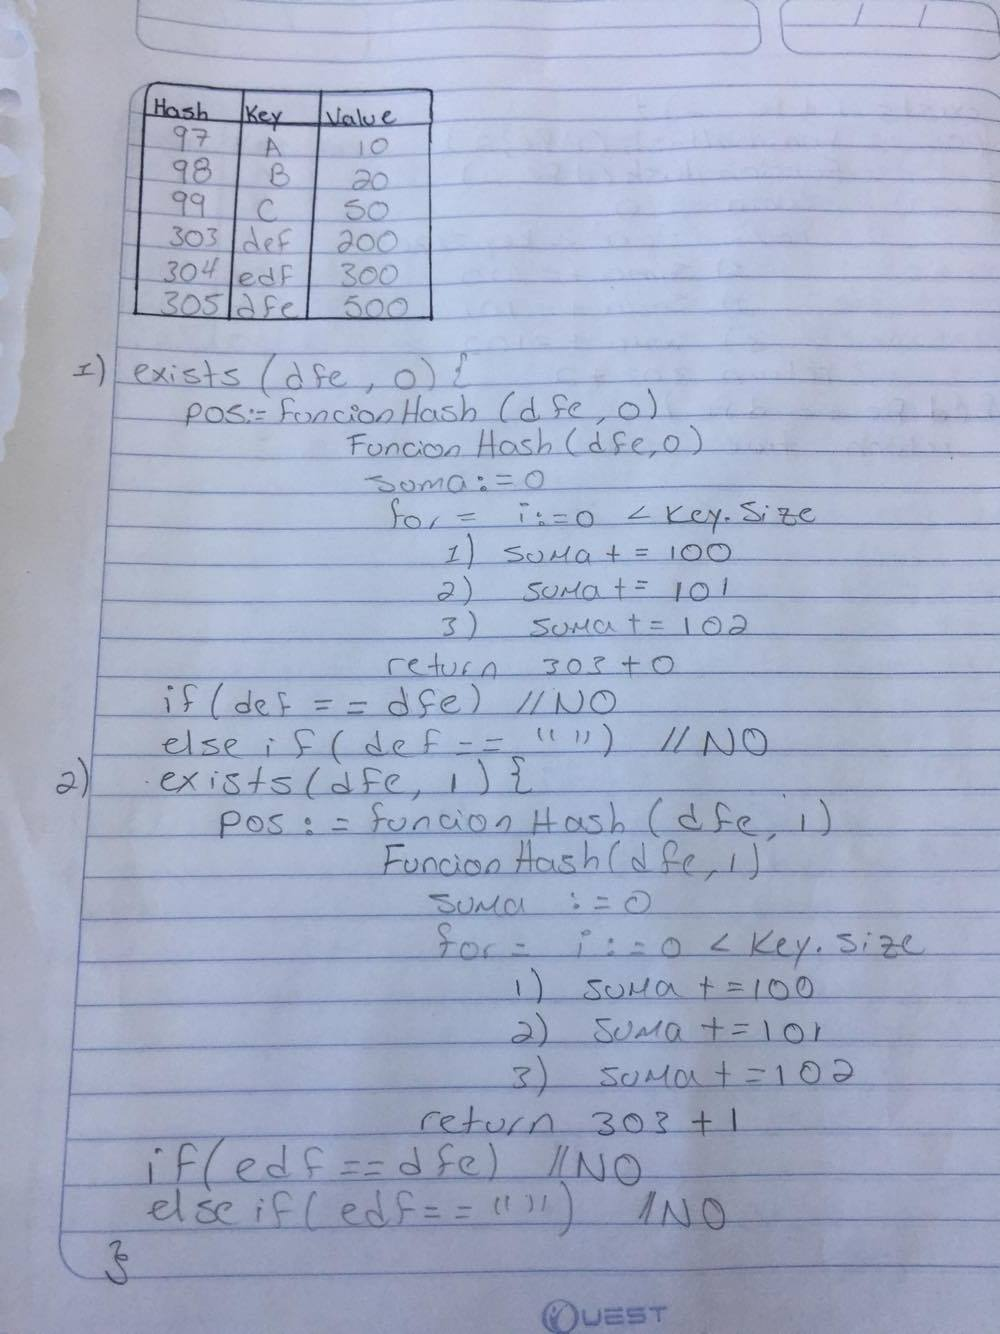 Hash Key Value
97 A 10
98 B 20
99 C 50
303 def 200
304 edf 300
305 dfe 500
1) exists (dfe, 0) {
pos:= funcionHash (dfe, 0)
Funcion Hash (dfe, 0)
suma := 0
for = i:=0 < Key.Size
1) suma += 100
2) suma += 101
3) suma += 102
return 303 + 0
if (def == dfe) //NO
else if (def == "") //NO
2) exists (dfe, 1) {
pos := funcion Hash (dfe, 1)
Funcion Hash (dfe, 1)
suma := 0
for = i:=0 < Key.size
1) suma +=100
2) suma +=101
3) suma +=102
return 303 + 1
if (edf == dfe) //NO
else if (edf == "") //NO
}
QUEST